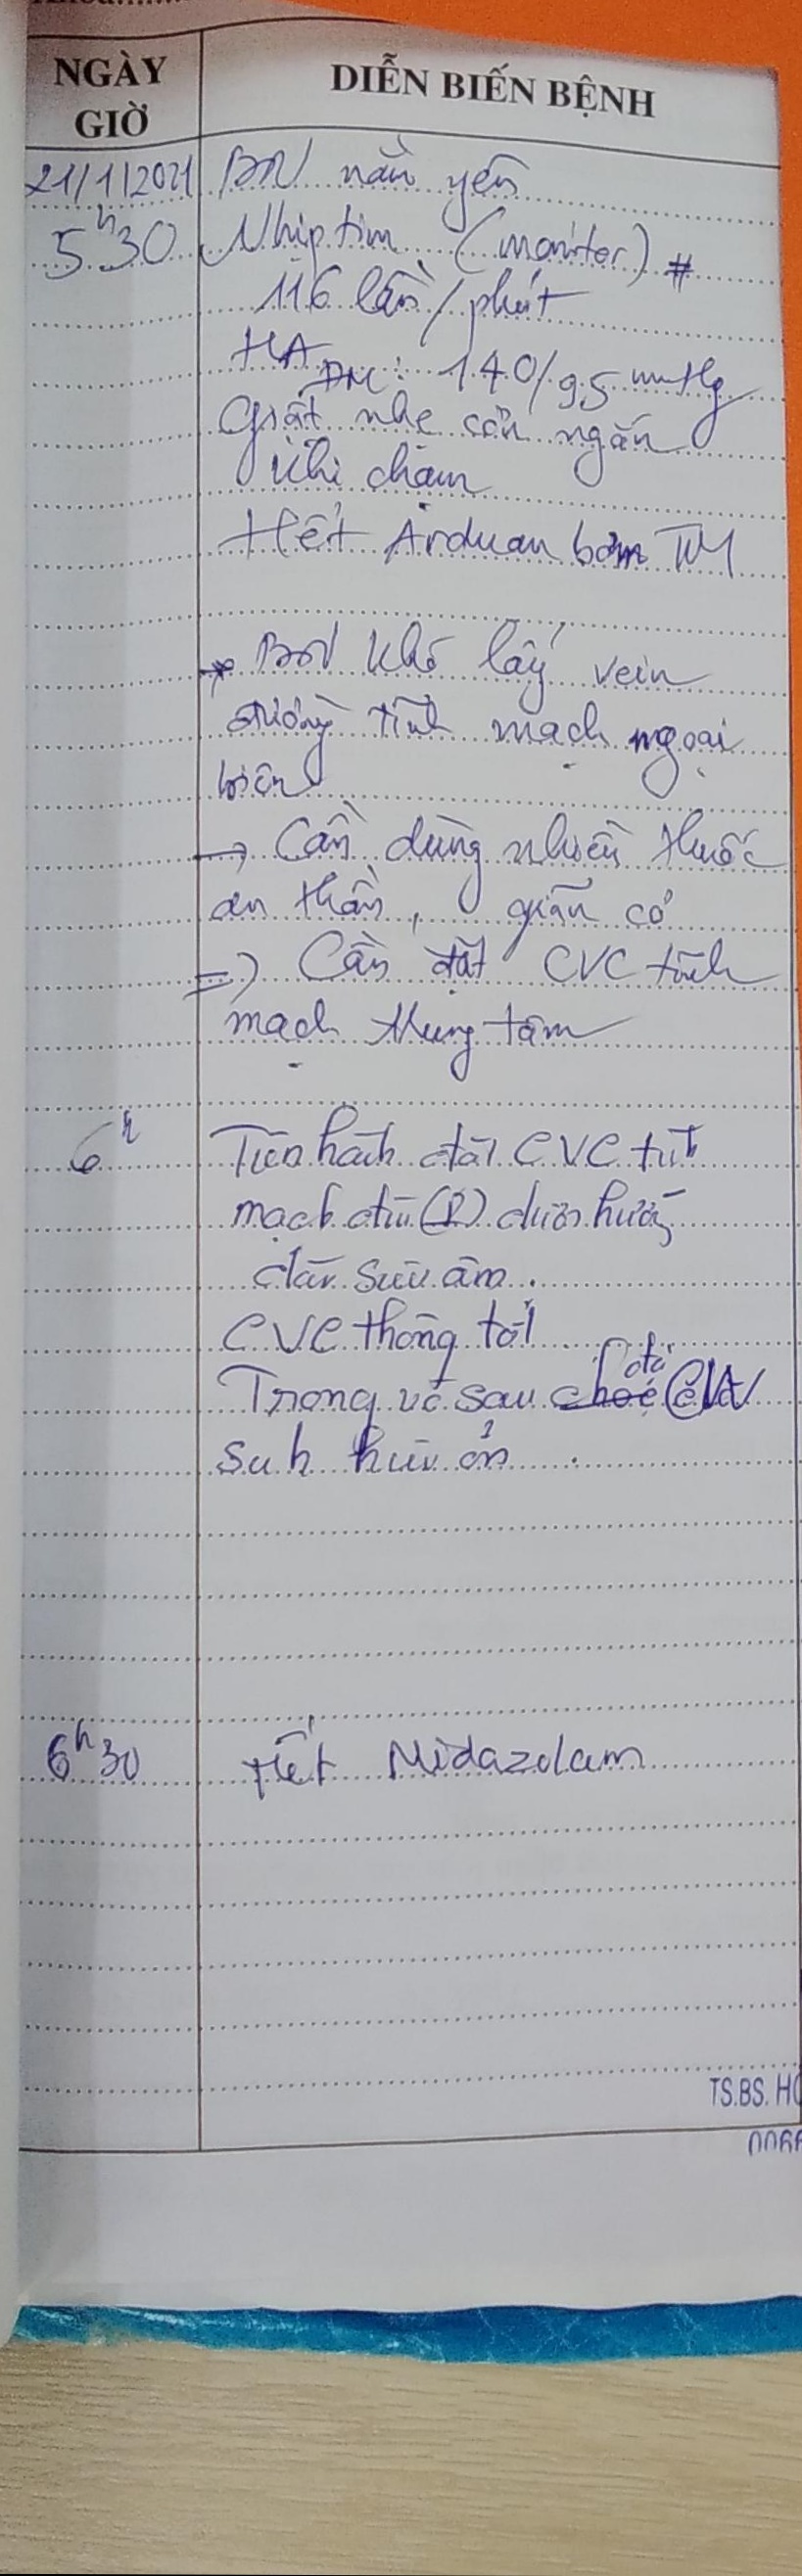 NGÀY GIỜ
DIỄN BIẾN BỆNH
21/1/2021 BN nằm yên
5h30 Nhịp tim (moniter) #
116 lần/phút
HA ĐM: 140/95 mmHg
Giật nhẹ cơn ngắn
khi chạm
Hết Arduan bơm TM
* BN khó lấy vein
đường tĩnh mạch ngoại
biên
→ Cần dùng nhiều thuốc
an thần, giãn cơ
=> Cần đặt CVC tĩnh
mạch trung tâm
6h Tiến hành đặt CVC tĩnh
mạch đùi (P) dưới hướng
dẫn siêu âm.
CVC thông tốt
Trong và sau đặt CVC
sinh hiệu ổn.
6h30 Hết Midazolam
TS.BS. HO